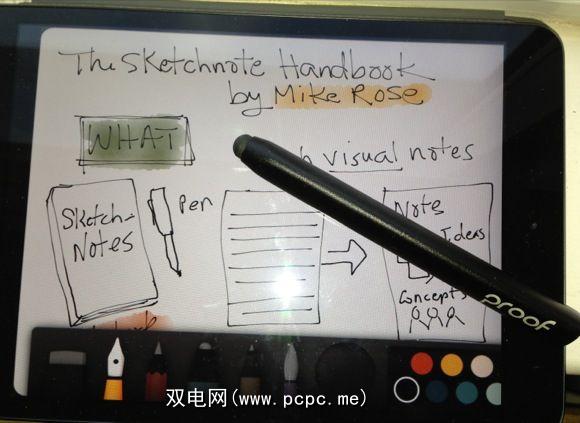 The Sketchnote Handbook
by Mike Rose
WHAT
visual notes
Sketch-
Notes
Pen
Note
Ideas
Concepts
proof
双电网(www.pcpc.me)